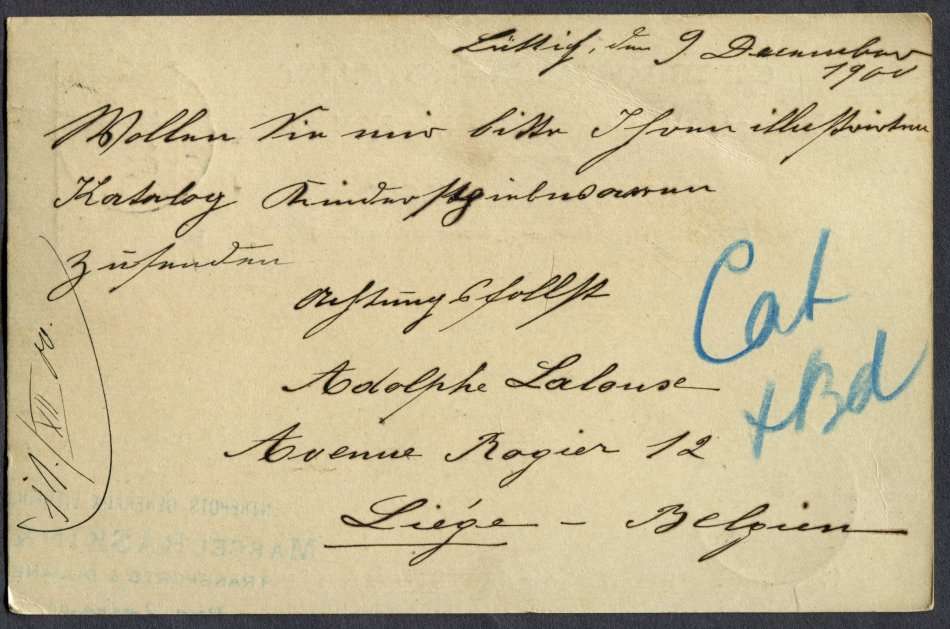 Lüttich, den 9 Dezember
1900
Wollen Sie mir bitte Ihren illustrirten
Katalog Kinderspielwaaren
zusenden
Achtungsvollst
Adolphe Lalouse
Avenue Rogier 12
Liége – Belgien
Cat
+ Bd
11./XII 00.
MARCEL RASKIN